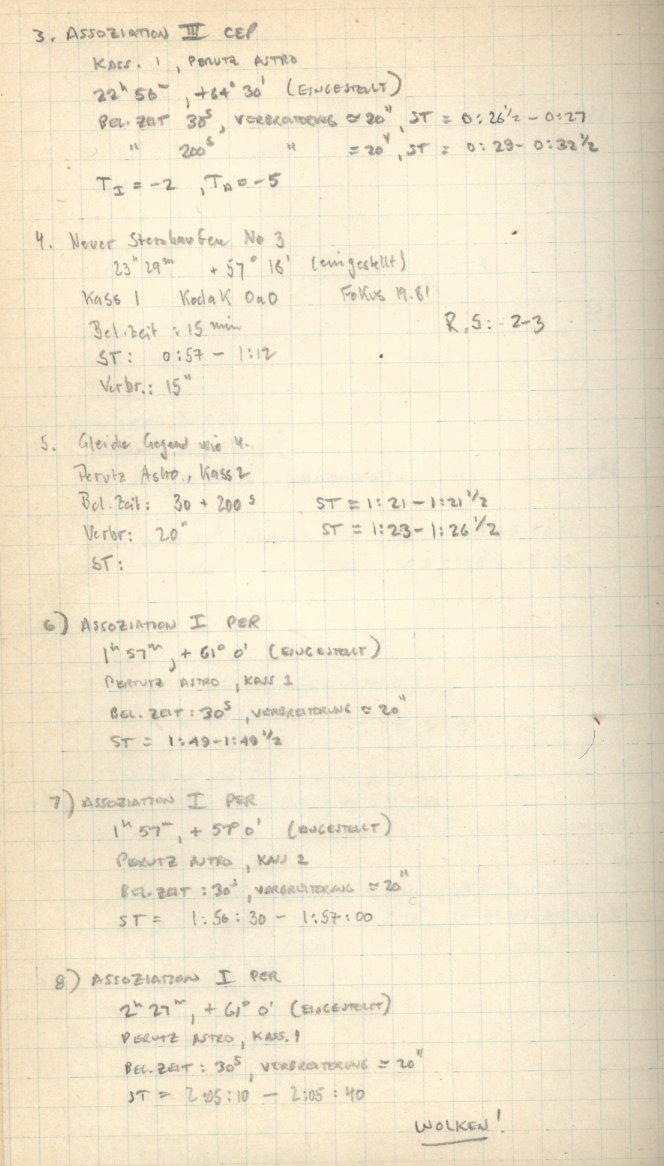 3. ASSOZIATION III CEP
KASS. 1, PERUTZ ASTRO
22ʰ 56ᵐ, +64° 30' (EINGESTELLT)
BEL. ZEIT 30ˢ, VERBREITERUNG ≃ 20", ST = 0:26½ - 0:27
" 200ˢ " = 20", ST = 0:29 - 0:32½
T_I = -2, T_A = -5
4. Neuer Sternhaufen No 3
23ʰ 29ᵐ +57° 16' (eingestellt)
Kass 1 Kodak OaO Fokus 19.61
Bel. Zeit : 15 min R, S: -2-3
ST: 0:57 - 1:12
Verbr.: 15"
5. Gleiche Gegend wie 4.
Perutz Astro, Kass 2
Bel. Zeit: 30 + 200ˢ ST = 1:21 - 1:21½
Verbr: 20" ST = 1:23 - 1:26½
ST:
6) ASSOZIATION I PER
1ʰ 57ᵐ, + 61° 0' (EINGESTELLT)
PERUTZ ASTRO, KASS 1
BEL. ZEIT : 30ˢ, VERBREITERUNG ≃ 20"
ST = 1:49 - 1:49½
7) ASSOZIATION I PER
1ʰ 57ᵐ, + 57° 0' (EINGESTELLT)
PERUTZ ASTRO, KASS 2
BEL. ZEIT : 30ˢ, VERBREITERUNG ≃ 20"
ST = 1:56:30 - 1:57:00
8) ASSOZIATION I PER
2ʰ 27ᵐ, + 61° 0' (EINGESTELLT)
PERUTZ ASTRO, KASS. 1
BEL. ZEIT : 30ˢ, VERBREITERUNG ≃ 20"
ST = 2:05:10 - 2:05:40
WOLKEN!